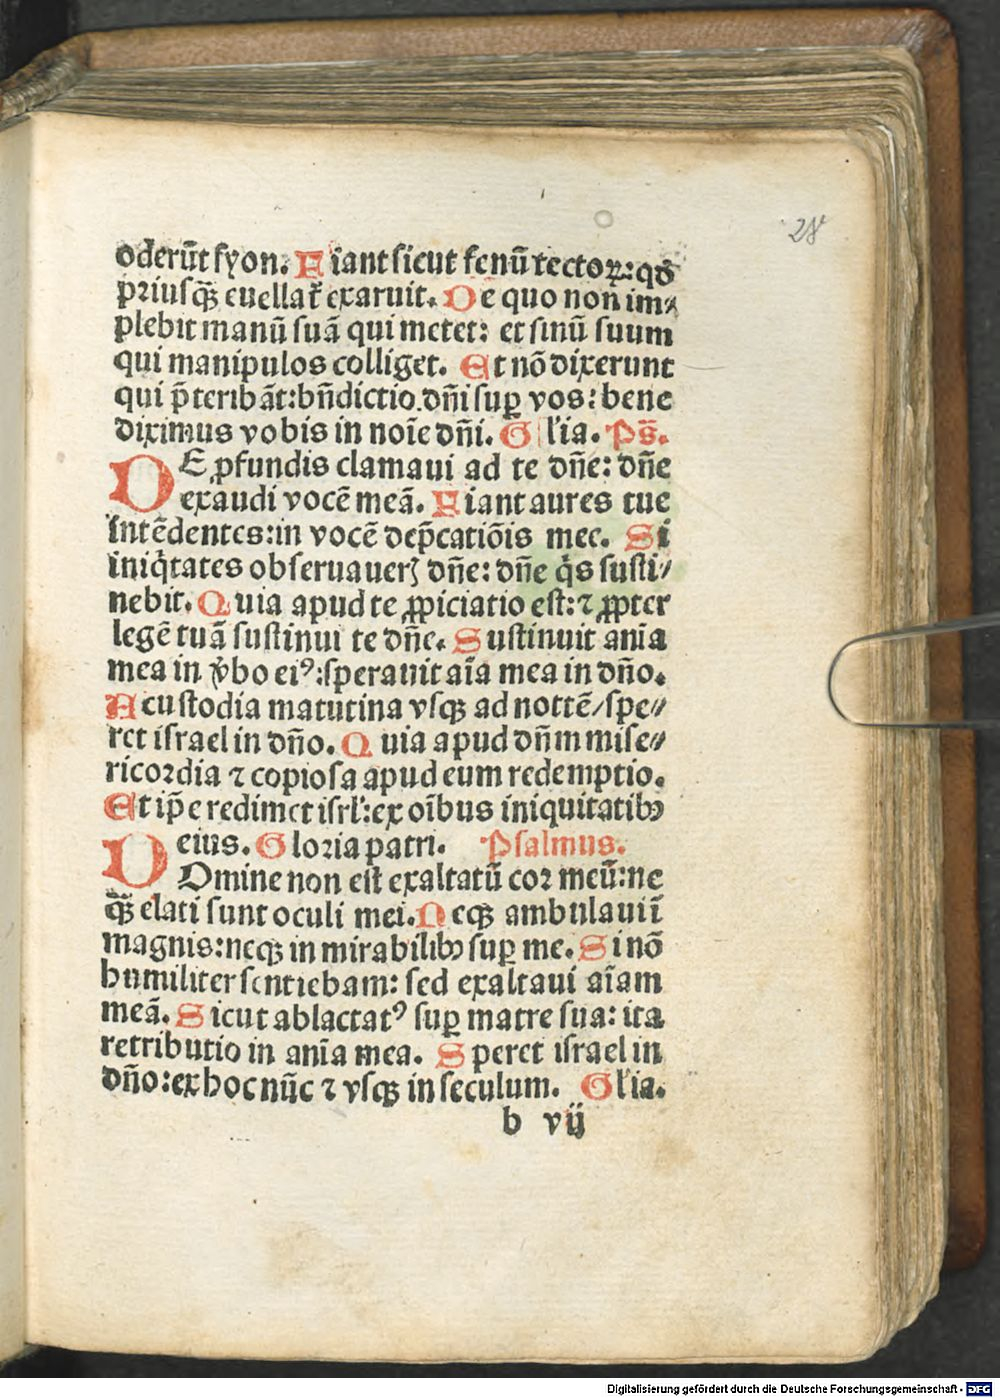 28
oderūt syon. Fiant sicut fenū tectoꝝ: qd̄
priusqȝ euellat᷑ exaruit. De quo non im⸗
plebit manū suā qui metet: et sinū suum
qui manipulos colliget. Et nō dixerunt
qui p̄teribāt: bn̄dictio dn̄i suꝑ vos: bene
diximus vobis in noīe dn̄i. Gl'ia. Ps̄.
DE ꝓfundis clamaui ad te dn̄e: dn̄e
exaudi vocē meā. Fiant aures tue
intēdentes: in vocē dep̄catiōis mee. Si
iniqͥtates obseruauerꝫ dn̄e: dn̄e qͥs susti⸗
nebit. Quia apud te ꝓpiciatio est: ⁊ ꝓpter
legē tuā sustinui te dn̄e. Sustinuit anīa
mea in v̾bo eiꝰ: sperauit aīa mea in dn̄o.
A custodia matutina vsqȝ ad nottē/spe⸗
ret israel in dn̄o. Quia apud dn̄m mise⸗
ricordia ⁊ copiosa apud eum redemptio.
Et ip̄e redimet isrl': ex oībus iniquitatibꝰ
eius. Gloria patri. Psalmus.
DOmine non est exaltatū cor meū: ne
qȝ elati sunt oculi mei. Neqȝ ambulaui ī
magnis: neqȝ in mirabilibꝰ suꝑ me. Si nō
humiliter sentiebam: sed exaltaui aīam
meā. Sicut ablactatꝰ suꝑ matre sua: ita
retributio in anīa mea. Speret israel in
dn̄o: ex hoc nūc ⁊ vsqȝ in seculum. Gl'ia.
b vij
Digitalisierung gefördert durch die Deutsche Forschungsgemeinschaft - DFG